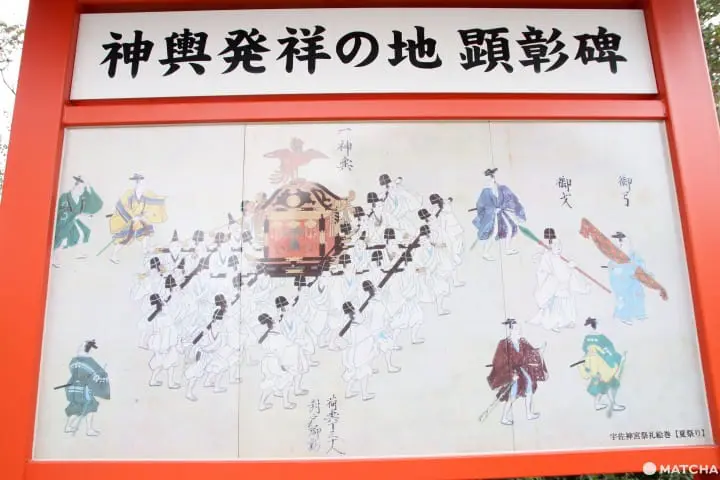 神輿発祥の地 顕彰碑
一神輿
御弓
御戈
宇佐神宮祭礼絵巻【夏祭り】
MATCHA